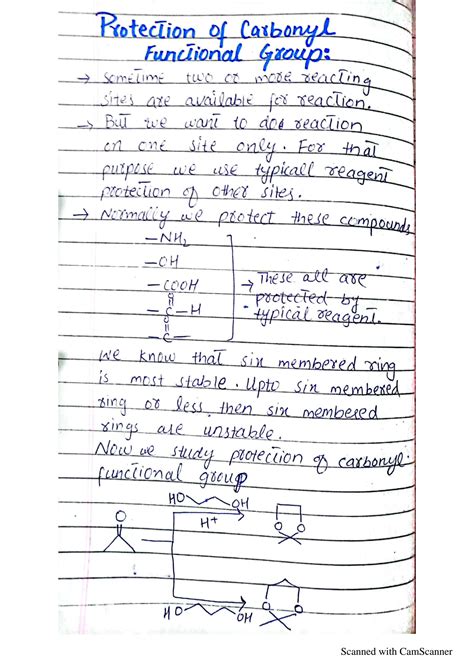 Protection of Carbonyl
Functional Group:
→ Sometime two or more reacting
sites are available for reaction.
→ But we want to doe reaction
on one site only. For that
purpose we use typicall reagent
protection of other sites.
→ Normally we protect these compounds
—NH₂
—OH
—COOH
O
—C—H
O
—C—
→ These all are
protected by
typical reagent.
We know that six membered ring
is most stable. Upto six membered
ring or less then six membered
rings are unstable.
Now we study protection of carbonyl
functional group
HO OH
H+
O
O O
HO OH
O O
Scanned with CamScanner